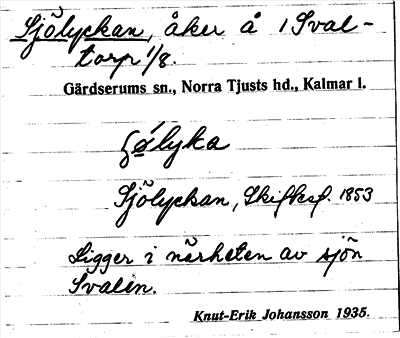 Sjölyckan, åker å 1 Sval-
torp 1/8.
Gärdserums sn., Norra Tjusts hd., Kalmar l.
Sjölyckan, Skifksf. 1853
Ligger i närheten av sjön
Svalen.
Knut-Erik Johansson 1935.